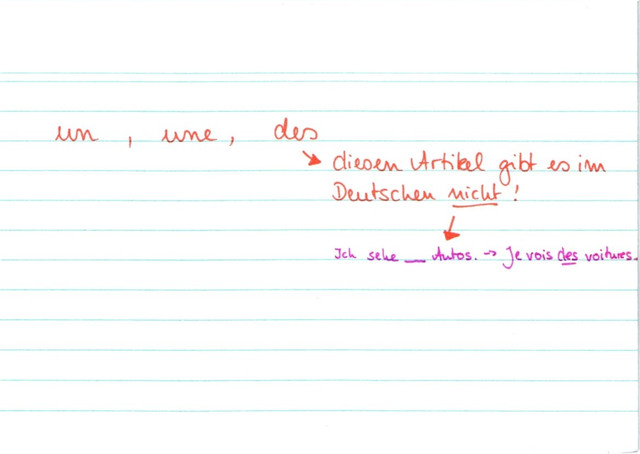 un, une, des
→ diesen Artikel gibt es im
Deutschen nicht!
↓
Ich sehe __ Autos. → Je vois des voitures.